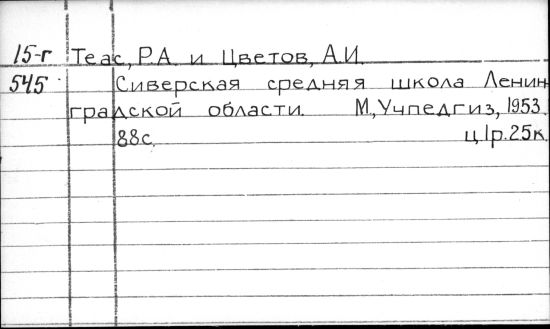 15-г Теас, Р.А. и Цветов, А.И.
545 Сиверская средняя школа Ленин
градской области. М, Учпедгиз, 1953.
88с. ц.1р.25к.